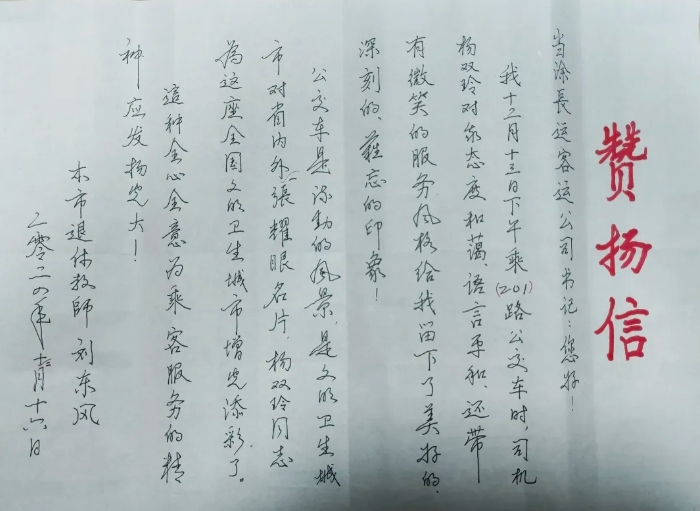 赞扬信
当涂長运客运公司书记：您好！
我十二月十三日下午乘(201)路公交车时，司机
杨双玲对乘态度和蔼、语言平和、还带
有微笑的服务风格给我留下了美好的、
深刻的、难忘的印象！
公交车是流动的风景，是文明卫生城
市对省内外一張耀眼名片，杨双玲同志
为这座全国文明卫生城市增光添彩了。
這种全心全意为乘客服务的精
神应发扬光大！
本市退休教師 刘东风
二零二四年十二月十六日